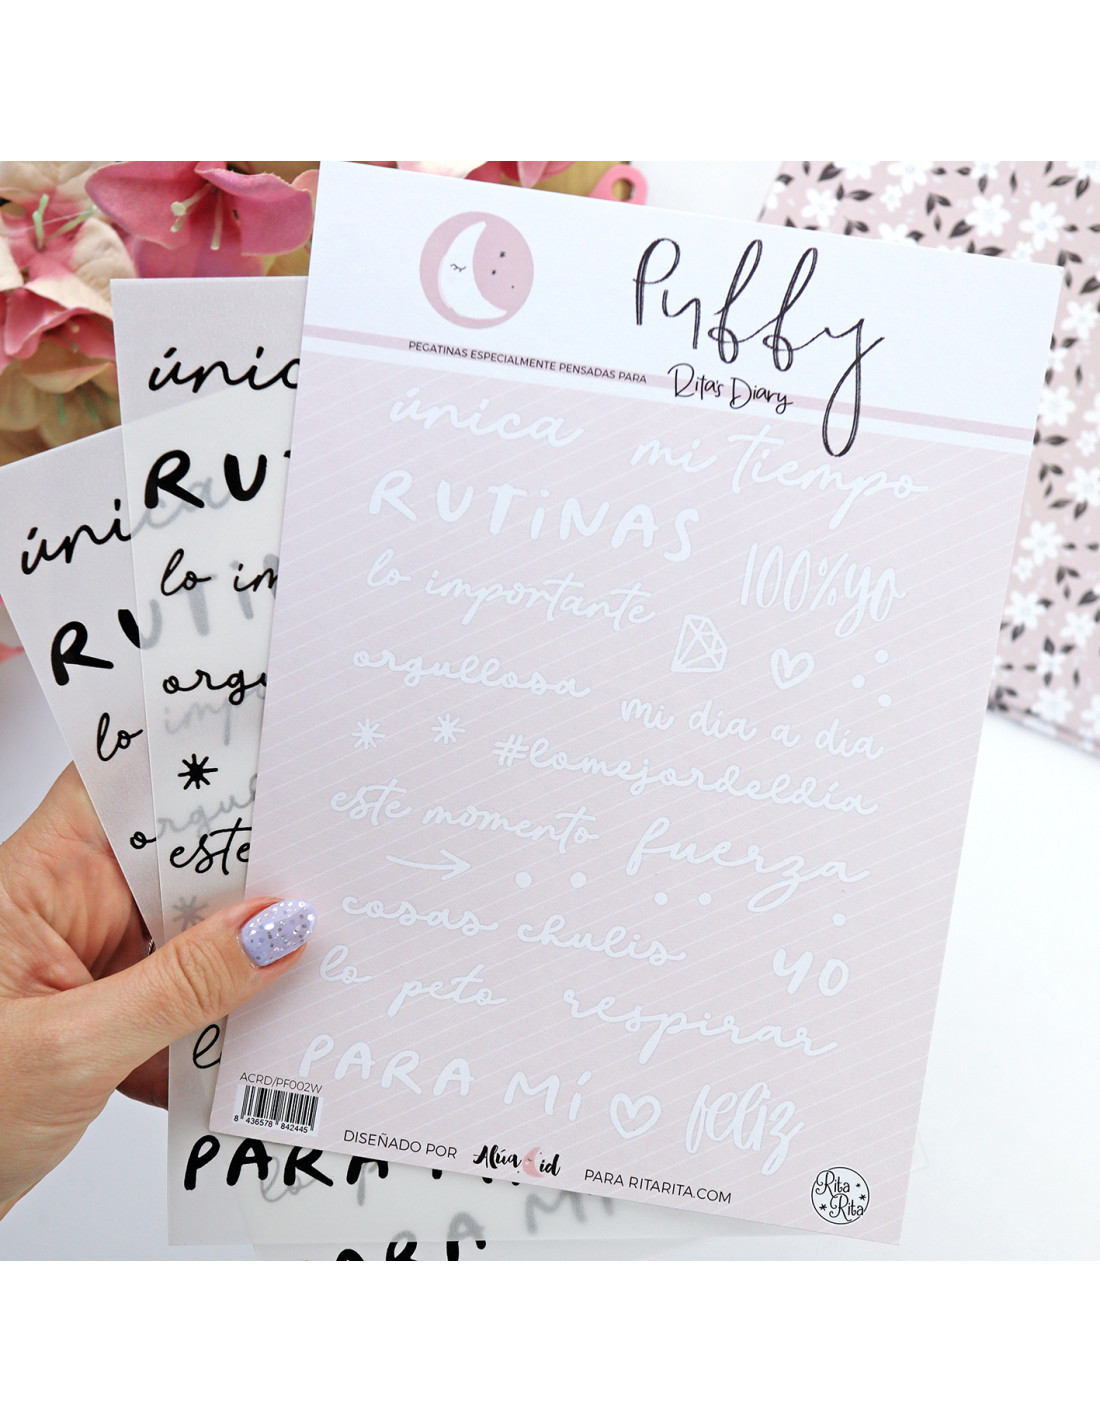 Puffy
PEGATINAS ESPECIALMENTE PENSADAS PARA Rita's Diary
única mi tiempo
RUTiNAS
100%yo
lo importante
orgullosa mi día a día
#lomejordeldía
este momento fuerza
cosas chulis yo
lo peto respirar
PARA Mí feliz
ACRD/PF002W
8 436578 842445
DISEÑADO POR Alúa Cid PARA RITARITA.COM
Rita
Rita
únic
RU
lo im
orgu
este
PARA
úni
R
lo
o